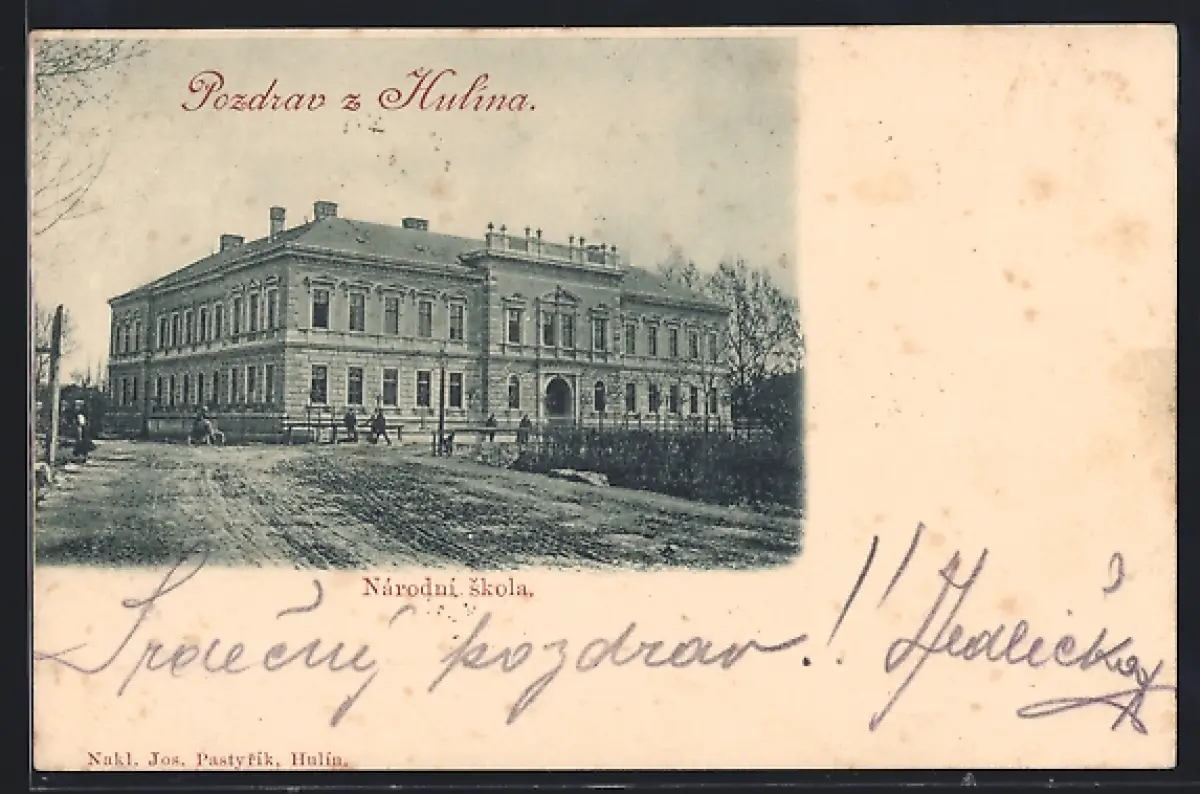 Pozdrav z Hulína.
Národní škola.
Srdečný pozdrav!! Jedlička
Nakl. Jos. Pastyřík, Hulín.